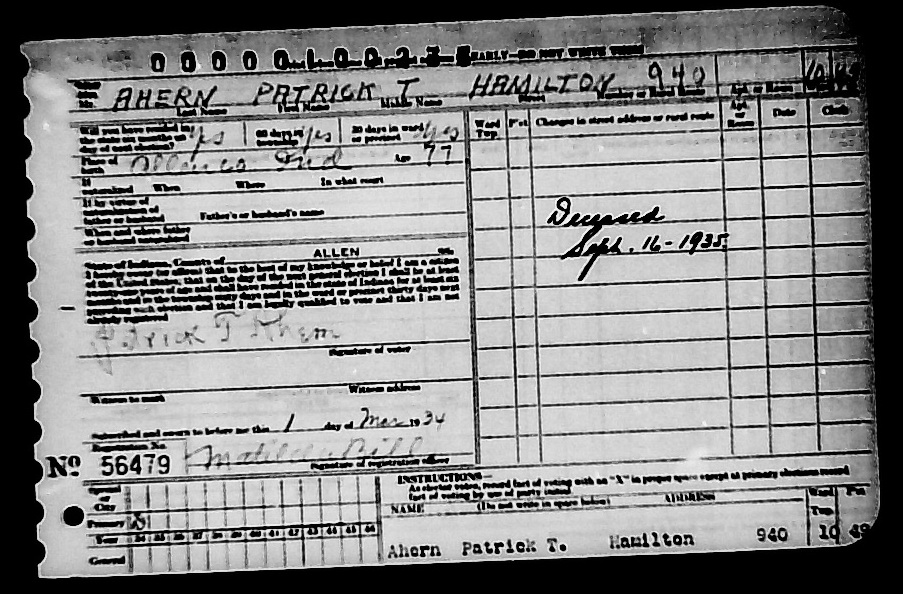 0 0 0 0 0 1 0 0 2 3 5 EARLY—DO NOT WRITE THESE
Mr. AHERN PATRICK T HAMILTON 940 10 49
Last Name First Name Middle Name Street Number or Rural Route Apt. or Room
Will you have resided in the state six months on day of next election? Yes 60 days in township? Yes 30 days in ward or precinct Yes
Ward Twp. P'ct. Changes in street address or rural route Apt. or Room Date Clerk
Place of birth Ind Age 77
If naturalized When Where In what court
If by virtue of naturalization of father or husband Father's or husband's name
When and where father or husband naturalized
Deceased
Sept. 16-1935
State of Indiana, County of ALLEN ss.
I hereby swear (or affirm) that to the best of my knowledge or belief I am a citizen
of the United States, that on the day of the next general election I shall be at least
twenty-one years of age and shall have resided in the state of Indiana for at least six
months and in the township sixty days and in the ward or precinct thirty days next
preceding such election and that I am legally qualified to vote and that I am not
already registered
Patrick T Ahern
Signature of voter
Witness to mark Witness address
Subscribed and sworn to before me this 1 day of Mar 1934
Registration No.
No 56479 Matilda Bill
Signature of registration officer
INSTRUCTIONS—
As elector votes, record fact of voting with an "X" in proper space except at primary elections record
fact of voting by use of party initial
Special or City
NAME (Do not write in space below) ADDRESS Ward Twp. P'ct
Primary
Year 34 35 36 37 38 39 40 41 42 43 44 45 46
General
Ahern Patrick T. Hamilton 940 10 49